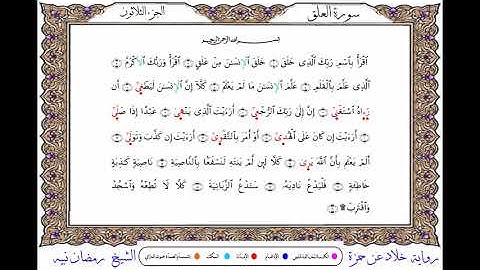 سورة العلق
الجزء الثلاثون
بسم الله الرحمن الرحيم
ٱقۡرَأۡ بِٱسۡمِ رَبِّكَ ٱلَّذِي خَلَقَ خَلَقَ ٱلۡإِنسَٰنَ مِنۡ عَلَقٍ ٱقۡرَأۡ وَرَبُّكَ ٱلۡأَكۡرَمُ
ٱلَّذِي عَلَّمَ بِٱلۡقَلَمِ عَلَّمَ ٱلۡإِنسَٰنَ مَا لَمۡ يَعۡلَمۡ كَلَّآ إِنَّ ٱلۡإِنسَٰنَ لَيَطۡغَىٰٓ أَن
رَّءَاهُ ٱسۡتَغۡنَىٰٓ إِنَّ إِلَىٰ رَبِّكَ ٱلرُّجۡعَىٰٓ أَرَءَيۡتَ ٱلَّذِي يَنۡهَىٰ عَبۡدًا إِذَا صَلَّىٰٓ
أَرَءَيۡتَ إِن كَانَ عَلَى ٱلۡهُدَىٰٓ أَوۡ أَمَرَ بِٱلتَّقۡوَىٰٓ أَرَءَيۡتَ إِن كَذَّبَ وَتَوَلَّىٰٓ
أَلَمۡ يَعۡلَم بِأَنَّ ٱللَّهَ يَرَىٰ كَلَّا لَئِن لَّمۡ يَنتَهِ لَنَسۡفَعَۢا بِٱلنَّاصِيَةِ نَاصِيَةٖ كَٰذِبَةٍ
خَاطِئَةٖ فَلۡيَدۡعُ نَادِيَهُۥ سَنَدۡعُ ٱلزَّبَانِيَةَ كَلَّا لَا تُطِعۡهُ وَٱسۡجُدۡۤ
وَٱقۡتَرِب۩
رواية خلاد عن حمزة
الشيخ رمضان نبيه